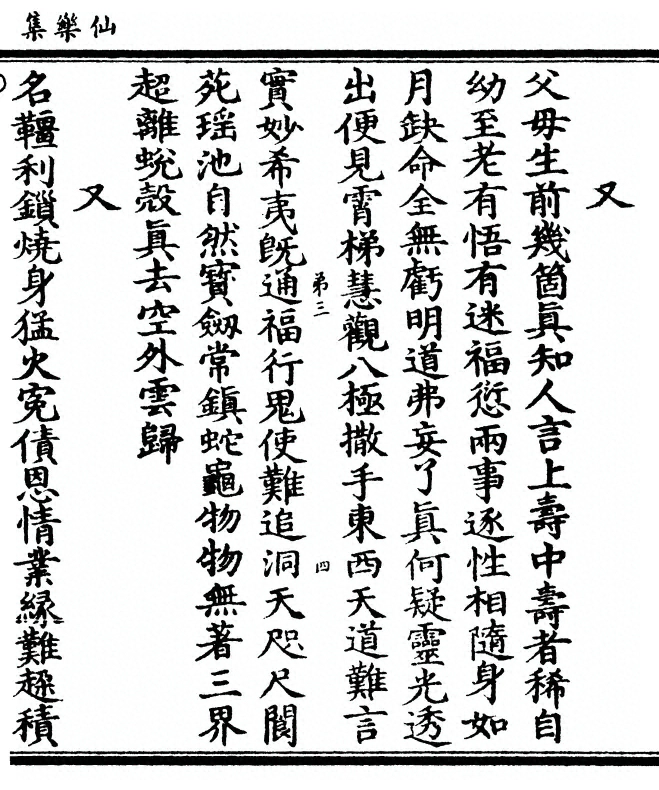 仙樂集
又
父母生前幾箇真知人言上壽中壽者稀自
幼至老有悟有迷福愆兩事逐性相隨身如
月缺命全無虧明道弗妄了真何疑靈光透
出便見霄梯慧觀八極撒手東西天道難言
第三
四
實妙希夷既通福行鬼使難追洞天咫尺閬
苑瑶池自然寳劔常鎮蛇龜物物無著三界
超離蛻殼真去空外雲歸
又
名韁利鎖燒身猛火寃債恩情業緣難趓積